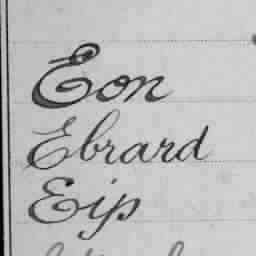 Eon
Ebrard
Eip